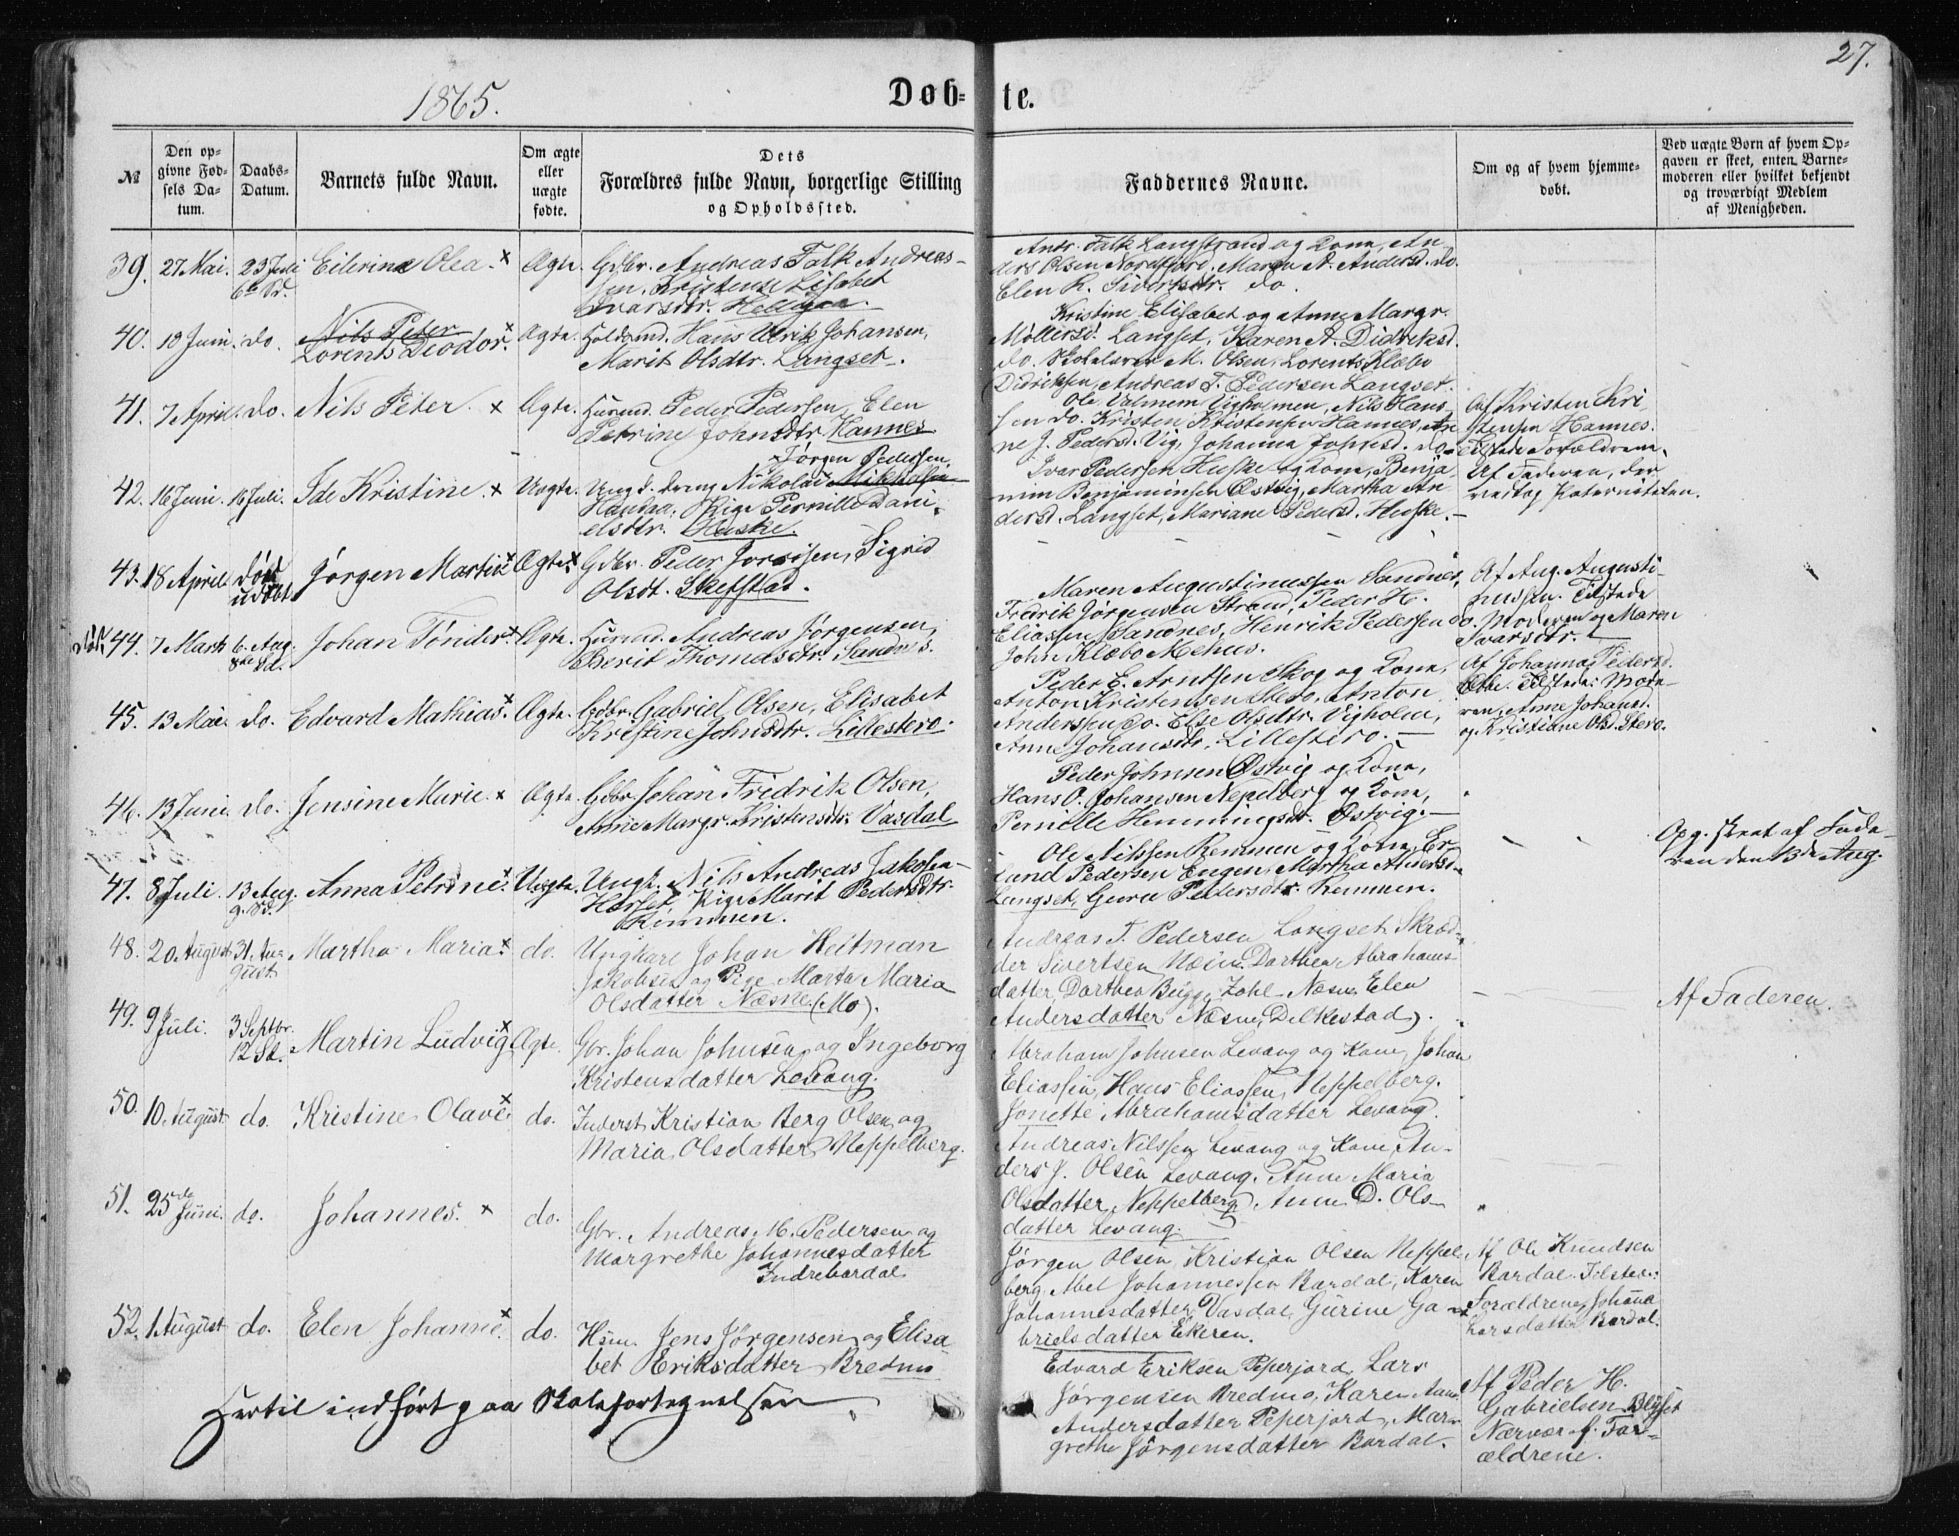 27.
1865.
Døb-te.
№
Den opgivne Fødsels Datum.
Daabs-Datum.
Barnets fulde Navn.
Om ægte eller uægte fødte.
Dets Forældres fulde Navn, borgerlige Stilling og Opholdssted.
Faddernes Navne.
Om og af hvem hjemmedøbt.
Ved uægte Børn af hvem Opgaven er skeet, enten Barnemoderen eller hvilket bekjendt og troværdigt Medlem af Menigheden.
39. 27 Mai. 23 Juli Eilerine Olea. x Ægte. Gdbr. Andreas Falk Andreas-
6te Sd. sen, Kristense Lisabet
Ivarsdtr.
Antr. Falk Langstrand og Kone, An-
ders Olsen Nordfjord, Maren A. Andersd. do.
Elen K. Sivertsdtr. do.
40. 18 Juni. do. Nils Peter
Lorents Deodor. x Ægte. Holdsmd. Hans Ulrik Johansen,
Marit Olsdtr. Langset.
Kristine Elisabet og Anne Margr.
Langset, Karen A. Didriksd.
do. Skolelærer M. Olsen, Lorents Klæbo
Didriksen, Andreas T. Pedersen Langset.
41. 7 April. do. Nils Peter. x Ægte. Husmd. Peder Pedersen, Elen
Petrine Johnsdtr. Hannes.
Ole Vigholmen, Nils Hans-
sen do. Kristen Kristensen Hannes, An-
ne J. Pedersd. Vig, Johanna Johnsd. do.
Af Kristen Kri-
stensen Hannes.
Tilstede Forældrene.
42. 16 Juni. 16 Juli. Ide Kristine. x Uægte. x Jørgen Pedersen
Ungd. dreng Nikolai Mikkelsen
Pige Pernille Dani-
elsdtr. Huske.
Ivar Pedersen Huske og Kone, Benja-
min Benjaminsen Østvig, Martha An-
dersd. Langset, Mariane Pedersd. Huske.
Af Faderen, der
vedtog Paterniteten.
43. 18 April død
udøbt Jørgen Martin x Ægte x Gdbr. Peder Sigrid
Olsdt.
død. 44. 7 Marts 6. Aug.
8de Sd. Johan Tønder. x Ægte. Husmd. Andreas Jørgensen,
Berit Thomasdtr. Sandnes.
Maren Augustinussen Sandnes,
Fredrik Jørgensen Strand, Peder H.
Eliassen Sandnes, Henrik Pedersen do
John Klæbo Mehus.
Af Aug. Augusti-
nussen. Tilstede
Moderen og Maren
Ivarsdtr.
45. 13 Mai. do. Edvard Mathias. x Ægte. Gdbr. Gabriel Olsen, Elisabet
Kristine Johnsdtr. Lillestero.
Peder E. Arntsen Skog og Kone,
Anton Kristensen Stero, Anton
Andersen do. Else Olsdtr. Vigholm,
Anne Johansdtr. Lillestero.
Af Johannes Pedersd.
Tilstede: Mode-
ren, Anne Johans.
og Kristiane Olsd. Stero.
46. 13 Juni. do. Jensine Marie. x Ægte. Gdbr. Johan Fridrik Olsen,
Anne Margr. Kristensdtr. Vasdal
Peder Johnsen Østvig og Kone,
Hans O. Johansen Nepelberg og Kone,
Pernille Hemmingsdtr. Østvig.
47. 8 Juli. 13 Aug.
9. Sd. Anna Petrine x Uægte. Ungk. Nils Andreas Jakobs-
Pige Marit Pedersdtr.
Remmen.
Ole Nilssen Remmen og Kone, Er-
land Pedersen Engen, Martha Andersd.
Langset, Guru Pedersdtr. Remmen.
Opg. skeet af Fade-
ren den 13de Aug.
48. 20 August 31. Au-
gust Martha Maria x do. Ungkarl Johan Heitman
Jakobsen og Pige Marta Maria
Olsdatter Næsne (Mo).
Andreas T. Pedersen Langset, Skræd-
der Sivertsen Næsne, Dorthea Abrahams-
datter, Dorthea Bugge Zahl Næsne, Elen
Andersdatter Næsne, Delkestad).
Af Faderen.
49. 9 Juli. 3 Septbr.
12 Sd. Martin Ludvig x Ægte. Gbr. Johan Johnsen og Ingeborg
Kristensdatter Levang.
Abraham Johnsen Levang og Kone, Johan
Eliassen, Hans Eliassen, Neppelberg.
Jonette Abrahamsdatter Levang.
50. 10. August do. Kristine Olave x do. Inderst Kristian Berg Olsen og
Maria Olsdatter Neppelberg.
Andreas Nilssen Levang og Kone, An-
ders J. Olsen Levang, Anne Maria
Olsdatter Neppelberg, Anne D. Ols-
datter Levang.
51. 25de Juni. do. Johannes. x do. Gbr. Andreas M. Pedersen og
Margrethe Johannesdatter
Indrebardal.
Jørgen Olsen, Kristian Olsen Neppel-
berg, Abel Johannessen Bardal, Karen
Johannesdatter Vasdal, Gurine Ga-
brielsdatter Ekeren.
Af Ole Knudsen
Bardal. Tilsted.:
Forældrene, Johanna
Larsdatter Bardal.
52. 1 August do. Elen Johanne x do. Husm. Jens Jørgensen og Elisa
bet Eriksdatter Bredmo
Edvard Eriksen Peperjord, Lars
Jørgensen Bredmo, Karen Anne
Andersdatter Peperjord, Mar-
grethe Jørgensdatter Bardal.
Af Peder H.
Gabrielsen
Nærvær. f. For-
ældrene.
Hertil indført paa Skolefortegnelsen